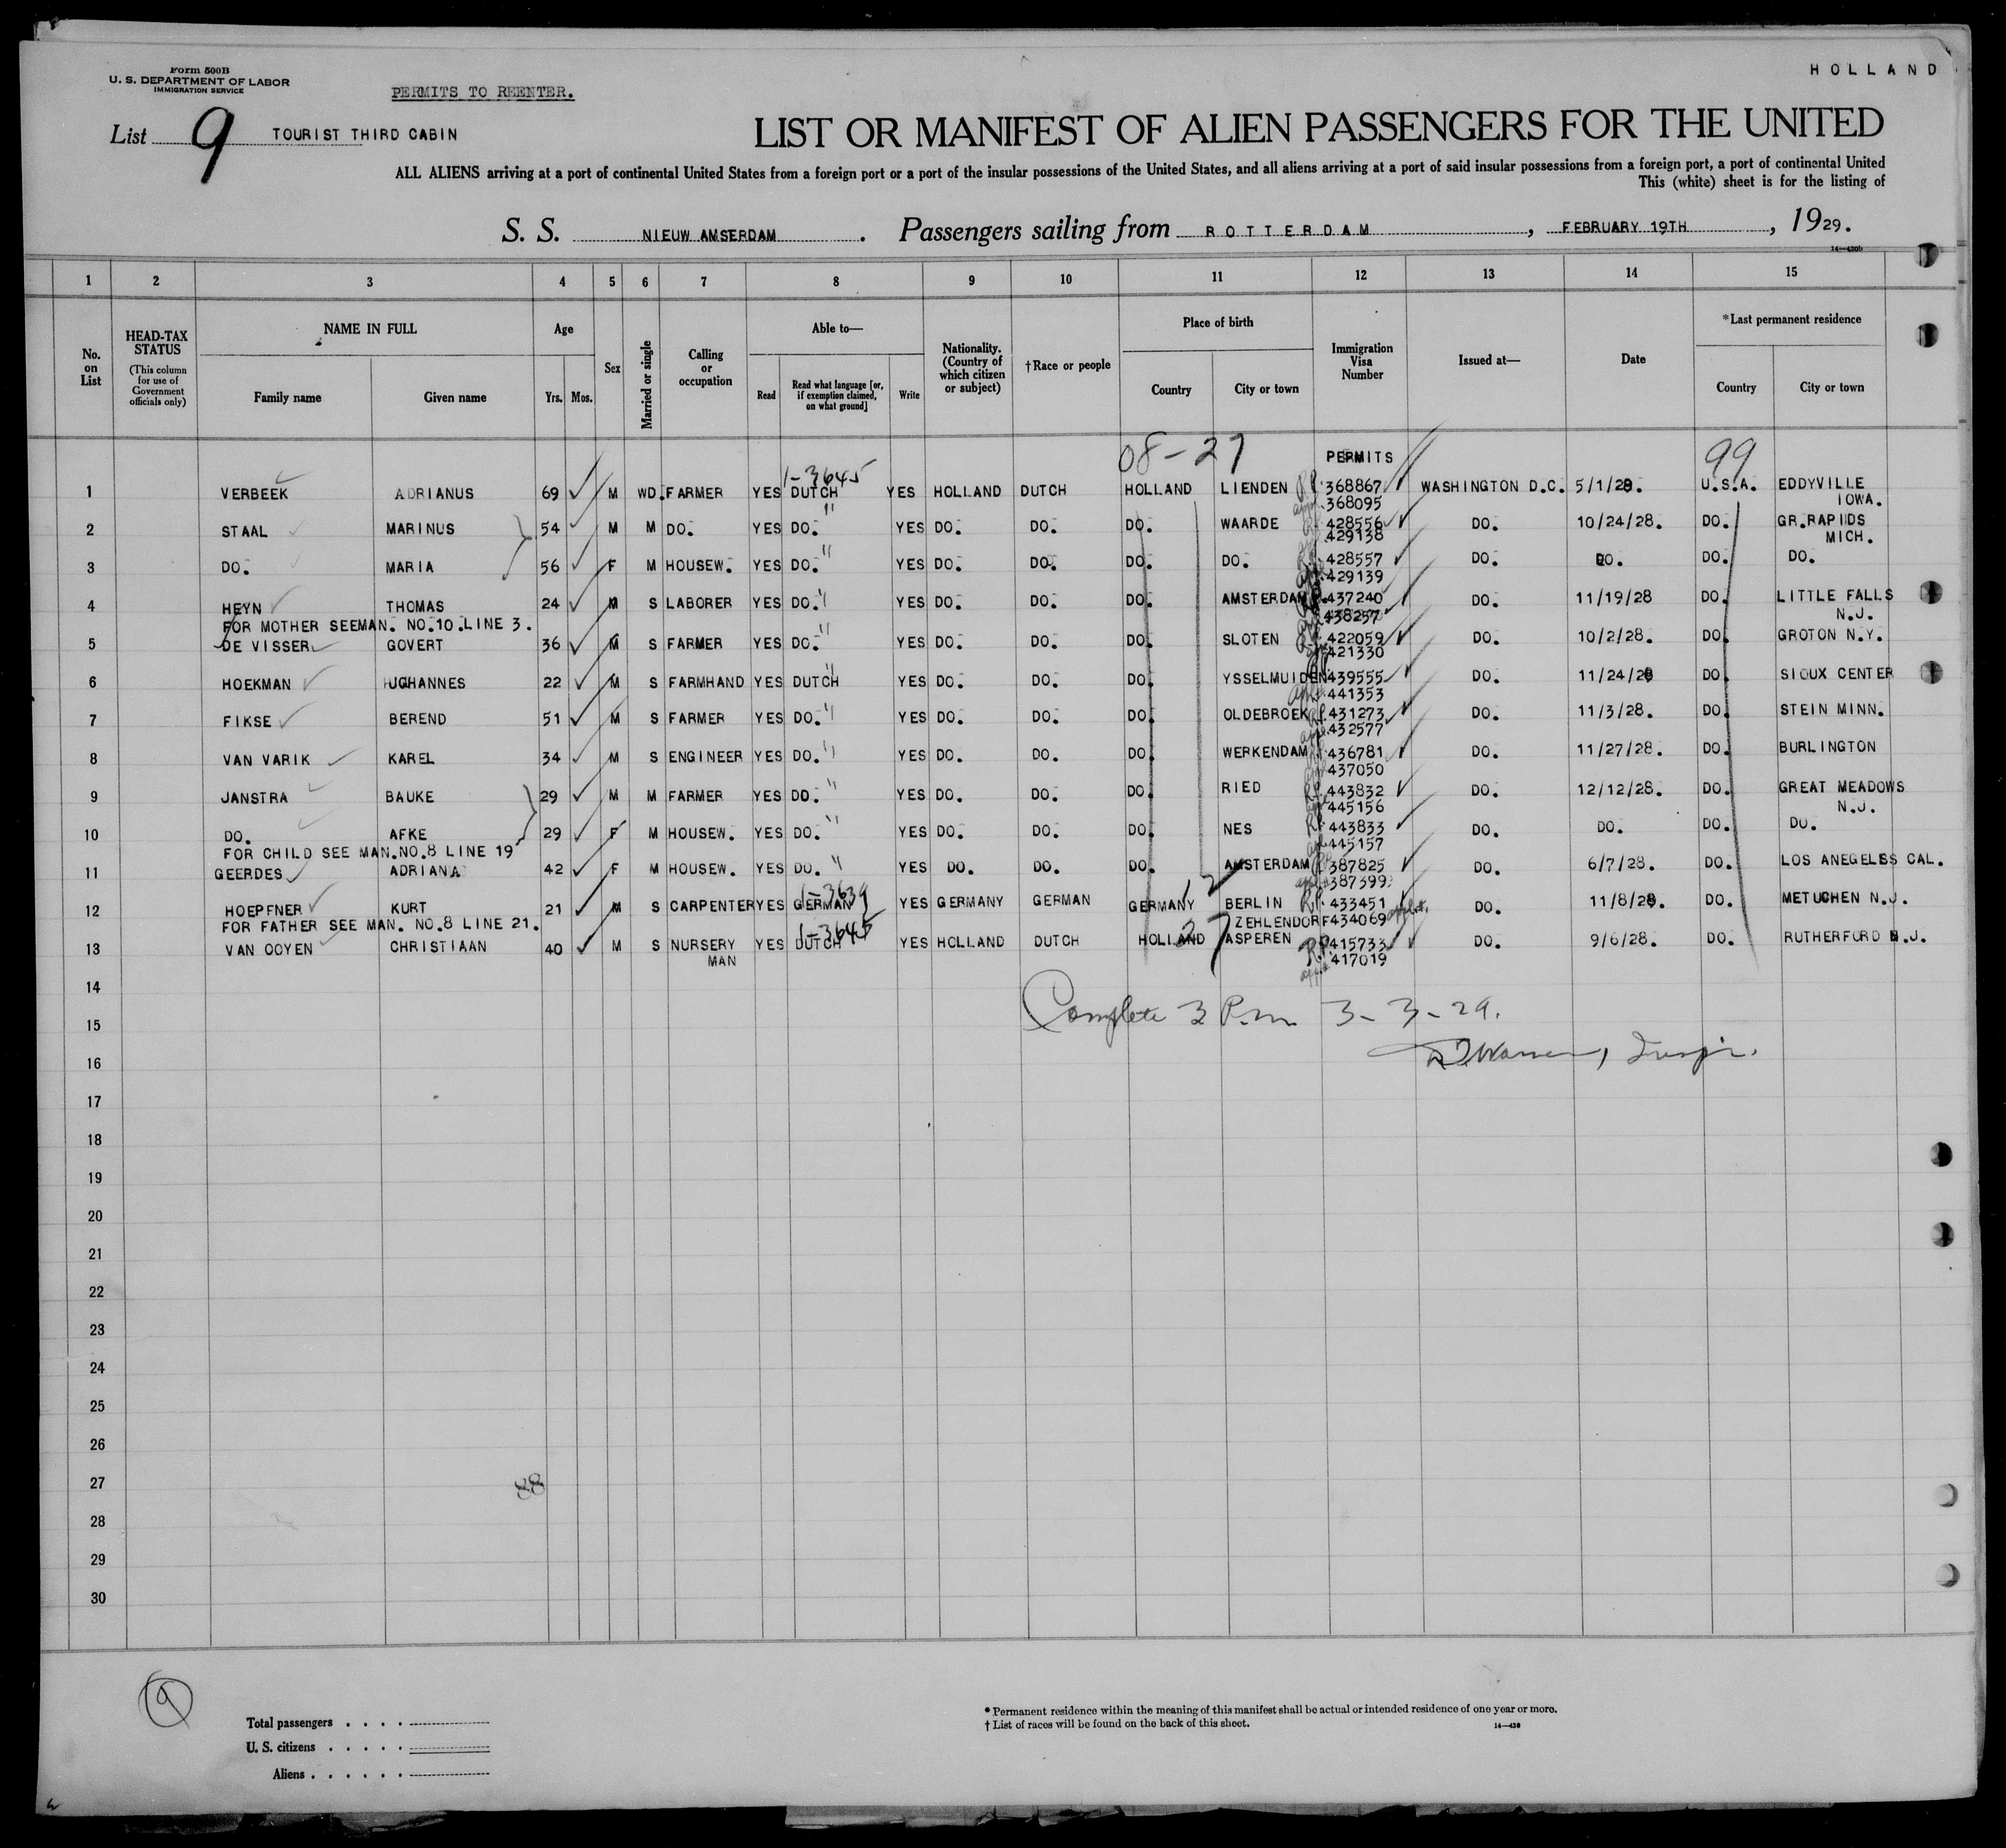 Form 500B
U. S. DEPARTMENT OF LABOR
IMMIGRATION SERVICE
HOLLAND
PERMITS TO REENTER.
List 9 TOURIST THIRD CABIN
LIST OR MANIFEST OF ALIEN PASSENGERS FOR THE UNITED
ALL ALIENS arriving at a port of continental United States from a foreign port or a port of the insular possessions of the United States, and all aliens arriving at a port of said insular possessions from a foreign port, a port of continental United
This (white) sheet is for the listing of
S. S. NIEUW AMSERDAM. Passengers sailing from ROTTERDAM, FEBRUARY 19TH, 1929.
14—430b
1 2 3 4 5 6 7 8 9 10 11 12 13 14 15
No. on List
HEAD-TAX STATUS
(This column for use of Government officials only)
NAME IN FULL
Family name Given name
Age
Yrs. Mos.
Sex
Married or single
Calling or occupation
Able to—
Read
Read what language [or, if exemption claimed, on what ground]
Write
Nationality. (Country of which citizen or subject)
†Race or people
Place of birth
Country City or town
Immigration Visa Number
Issued at—
Date
*Last permanent residence
Country City or town
08-27 PERMITS 99
1-3645
1 VERBEEK ADRIANUS 69 M WD. FARMER YES DUTCH YES HOLLAND DUTCH HOLLAND LIENDEN R.P. 368867 WASHINGTON D.C. 5/1/28. U.S.A. EDDYVILLE
368095 IOWA.
2 STAAL MARINUS 54 M M DO. YES DO. " YES DO. DO. DO. WAARDE 428556 DO. 10/24/28. DO. GR.RAPIDS
429138 MICH.
3 DO. MARIA 56 F M HOUSEW. YES DO. " YES DO. DO. DO. DO. 428557 DO. DO. DO. DO.
429139
4 HEYN THOMAS 24 M S LABORER YES DO. " YES DO. DO. DO. AMSTERDAM 437240 DO. 11/19/28 DO. LITTLE FALLS
FOR MOTHER SEEMAN. NO.10.LINE 3. 438257 N.J.
5 DE VISSER GOVERT 36 M S FARMER YES DO. " YES DO. DO. DO. SLOTEN 422059 DO. 10/2/28. DO. GROTON N.Y.
421330
6 HOEKMAN 22 M S FARMHAND YES DUTCH " YES DO. DO. DO. YSSELMUIDEN 439555 DO. 11/24/28 DO. SIOUX CENTER
441353
7 FIKSE BEREND 51 M S FARMER YES DO. " YES DO. DO. DO. OLDEBROEK R.P. 431273 DO. 11/3/28. DO. STEIN MINN.
432577
8 VAN VARIK KAREL 34 M S ENGINEER YES DO. " YES DO. DO. DO. WERKENDAM R.P. 436781 DO. 11/27/28. DO. BURLINGTON
437050
9 JANSTRA BAUKE 29 M M FARMER YES DO. " YES DO. DO. DO. RIED R.P. 443832 DO. 12/12/28. DO. GREAT MEADOWS
445156 N.J.
10 DO. AFKE 29 F M HOUSEW. YES DO. " YES DO. DO. DO. NES R.P. 443833 DO. DO. DO. DO.
FOR CHILD SEE MAN.NO.8 LINE 19 445157
11 GEERDES ADRIANA 42 F M HOUSEW. YES DO. " YES DO. DO. DO. AMSTERDAM 387825 DO. 6/7/28. DO. LOS ANEGELES CAL.
387399
1-3639 12
12 HOEPFNER KURT 21 M S CARPENTER YES GERMAN YES GERMANY GERMAN GERMANY BERLIN R.P. 433451 DO. 11/8/28. DO. METUCHEN N.J.
FOR FATHER SEE MAN. NO.8 LINE 21. ZEHLENDORF 434069
1-3645 27
13 VAN OOYEN CHRISTIAAN 40 M S NURSERY YES DUTCH YES HOLLAND DUTCH HOLLAND ASPEREN R.P. 415733 DO. 9/6/28. DO. RUTHERFORD N.J.
MAN 417019
14
Complete 3 P.m. 3-3-29.
15
Insp'r.
16
17
18
19
20
21
22
23
24
25
26
27
88
28
29
30
9
Total passengers
U. S. citizens
Aliens
* Permanent residence within the meaning of this manifest shall be actual or intended residence of one year or more.
† List of races will be found on the back of this sheet.
14—430